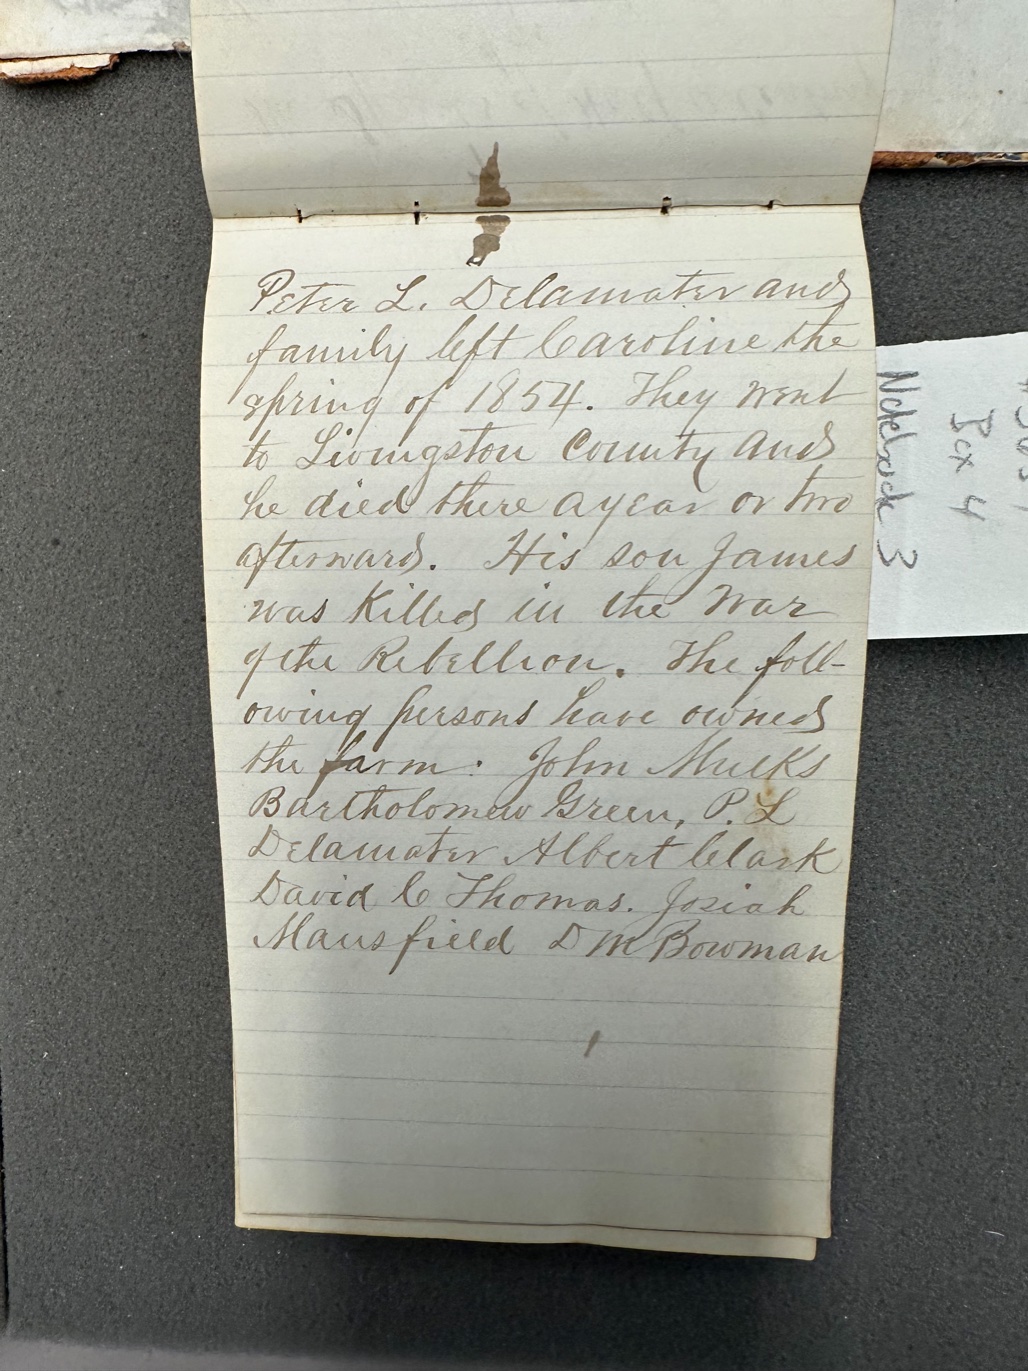 Peter L. Delamater and
family left Caroline the
spring of 1854. They went
to Livingston County and
he died there a year or two
afterward. His son James
was Killed in the War
of the Rebellion. The foll-
owing persons have owned
the farm: John Mulks
Bartholomew Green, P. L
Delamater Albert Clark
David C Thomas. Josiah
Mansfield D M Bowman
Box 4
Notebook 3